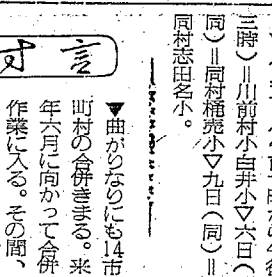 三時）＝川前村小白井小▽六日（
同）＝同村桶売小▽九日（同）＝
同村志田名小。
寸言
▼曲がりなりにも14市
町村の合併きまる。来
年六月に向かって合併
作業に入る。その間、